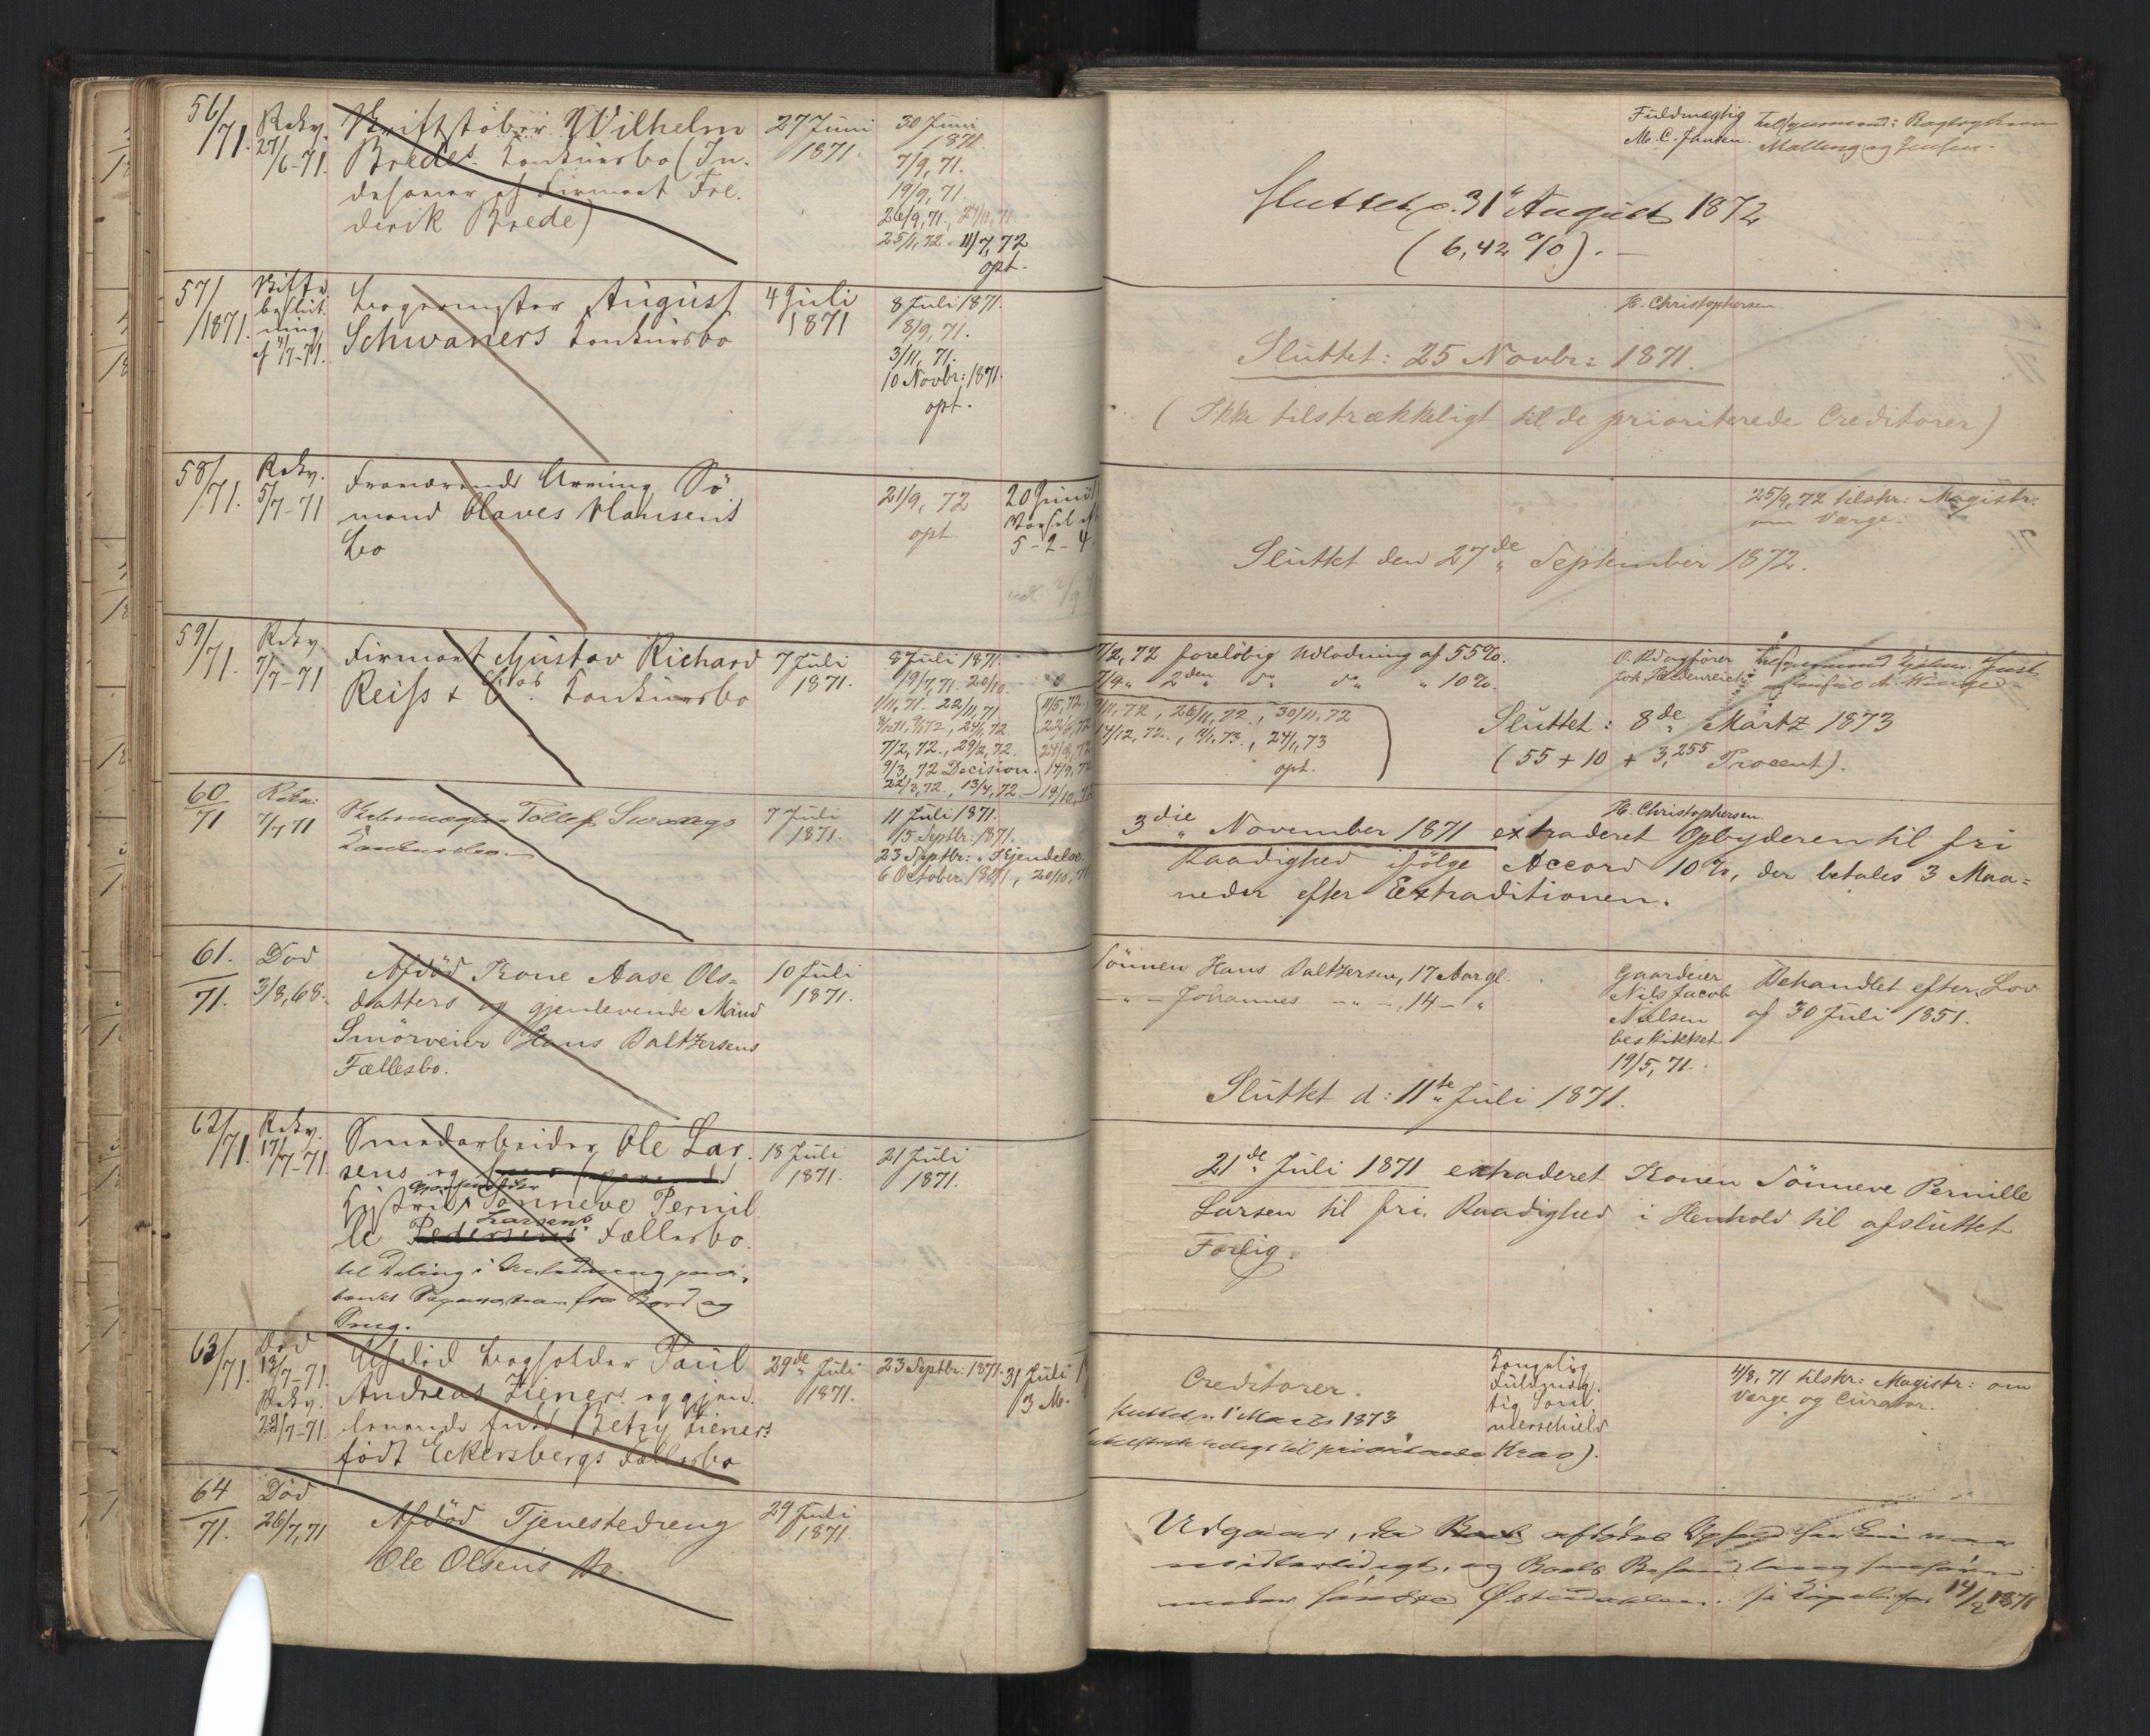 56/71.
Rekv.
27/6-71.
Skriftstøber Wilhelm
Bredes Konkursbo (In-
dehaver af Firmaet Fre-
derik Brede)
27 Juni
1871.
30 Juni
1871.
7/9, 71.
19/9, 71.
26/9, 71., 27/11, 71.
25/1, 72. 11/7, 72
opt.
Fuldmægtig
M. C. Jansen.
Tilsynsmænd:
Malling og Jensen.
Sluttet d. 31 August 1872
(6,42 %).
57/1871.
Skifte
beslut-
ning
af 4/7-71.
Bogermester August
Schwaners Konkursbo
4 Juli
1871
8 Juli 1871.
8/9, 71.
3/11, 71.
10 Novbr: 1871.
opt.
H. Christophersen.
Sluttet: 25 Novbr: 1871.
(Ikke tilstrækkeligt til de prioriterede Creditorer)
58/71.
Rekv.
5/7-71
Fraværende Arving Sø-
mand Olaves Hansens
Bo
21/9, 72
opt
20 Juni
Varsel
5-2-4
25/9, 72 tilskr: Magistr:
om Værge.
Sluttet den 27de September 1872.
59/71.
Rekv.
7/7-71
Firmaet Gustav Richard
Reiss & Cos. Konkursbo
7 Juli
1871.
8 Juli 1871.
19/7, 71. 20/10.
1/11, 71. 22/11, 71.
24/1, 72.
7/2, 72., 29/2, 72.
9/3, 72 Decision.
22/3, 72., 13/4, 72.
7/2, 72 foreløbig Udlodning af 55%.
7/9 " 2den do do " 10%.
9/11, 72, 26/11, 72., 30/11, 72
17/12, 72., 11/1, 73., 24/1, 73
opt.
O. Sagfører
Joh. Heidenreich
Sluttet: 8de Martz 1873
(55 + 10 + 3,255 Procent).
60/71
Rekv:
7/7 71
Tollef
Konkursbo.
7 Juli
1871.
11 Juli 1871.
15 Septbr: 1871.
23 Septbr: " Kjendelse.
6 October 1871, 20/10, 71
H. Christophersen.
3die November 1871 extraderet Opbyderen til fri
Raadighed ifølge Accord 10%, der betales 3 Maa-
neder efter Extraditionen.
61./71.
Død
3/8, 68.
Afdød Kone Aase Ols-
datters og gjenlevende Mand
Smørveier Hans Baltzersens
Fællesbo.
10 Juli
1871.
Sønnen Hans Baltzersen, 17 Aar gl.
- " - Johannes - " -, 14 - "
Gaardeier
Nils Jacob
Nielsen
beskikket
19/5, 71.
Behandlet efter Lov
af 30 Juli 1851.
Sluttet d: 11te Juli 1871.
62/71.
Rekv.
17/7-71
Smedarbeider Ole Lar-
sens og
Hustru Sønneve Pernil-
Larsens
le Pedersens Fællesbo.
til Deling i Anledning
Separation fra Bord og
Seng.
18 Juli
1871.
21 Juli
1871.
21de Juli 1871 extraderet Konen Sønneve Pernille
Larsen til fri Raadighed i Henhold til afsluttet
Forlig.
63/71.
Død
13/7-71.
Rekv.
28/7-71.
Afdød Bogholder Paul
Andreas Zieners og gjen-
levende Betzy Zieners
født Eckersbergs Fællesbo
29de Juli
1871.
23 Septbr: 1871.
31 Juli
3 M.
Creditorer.
Sluttet d. 1 Marts 1873
til prioriterede Krav).
Kongelig
Fuldmæg-
tig Som-
merschield
4/8, 71 tilskr: Magistr: om
Værge og Curator.
64/71.
Død
26/7, 71
Afdød Tjenestedreng
Ole Olsens Bo.
29 Juli
1871.
Udgaaer, da afdødes Ophold her kun var
midlertidigt, og Boets Behandling
under søndre Østerdalen. 14/2 1871